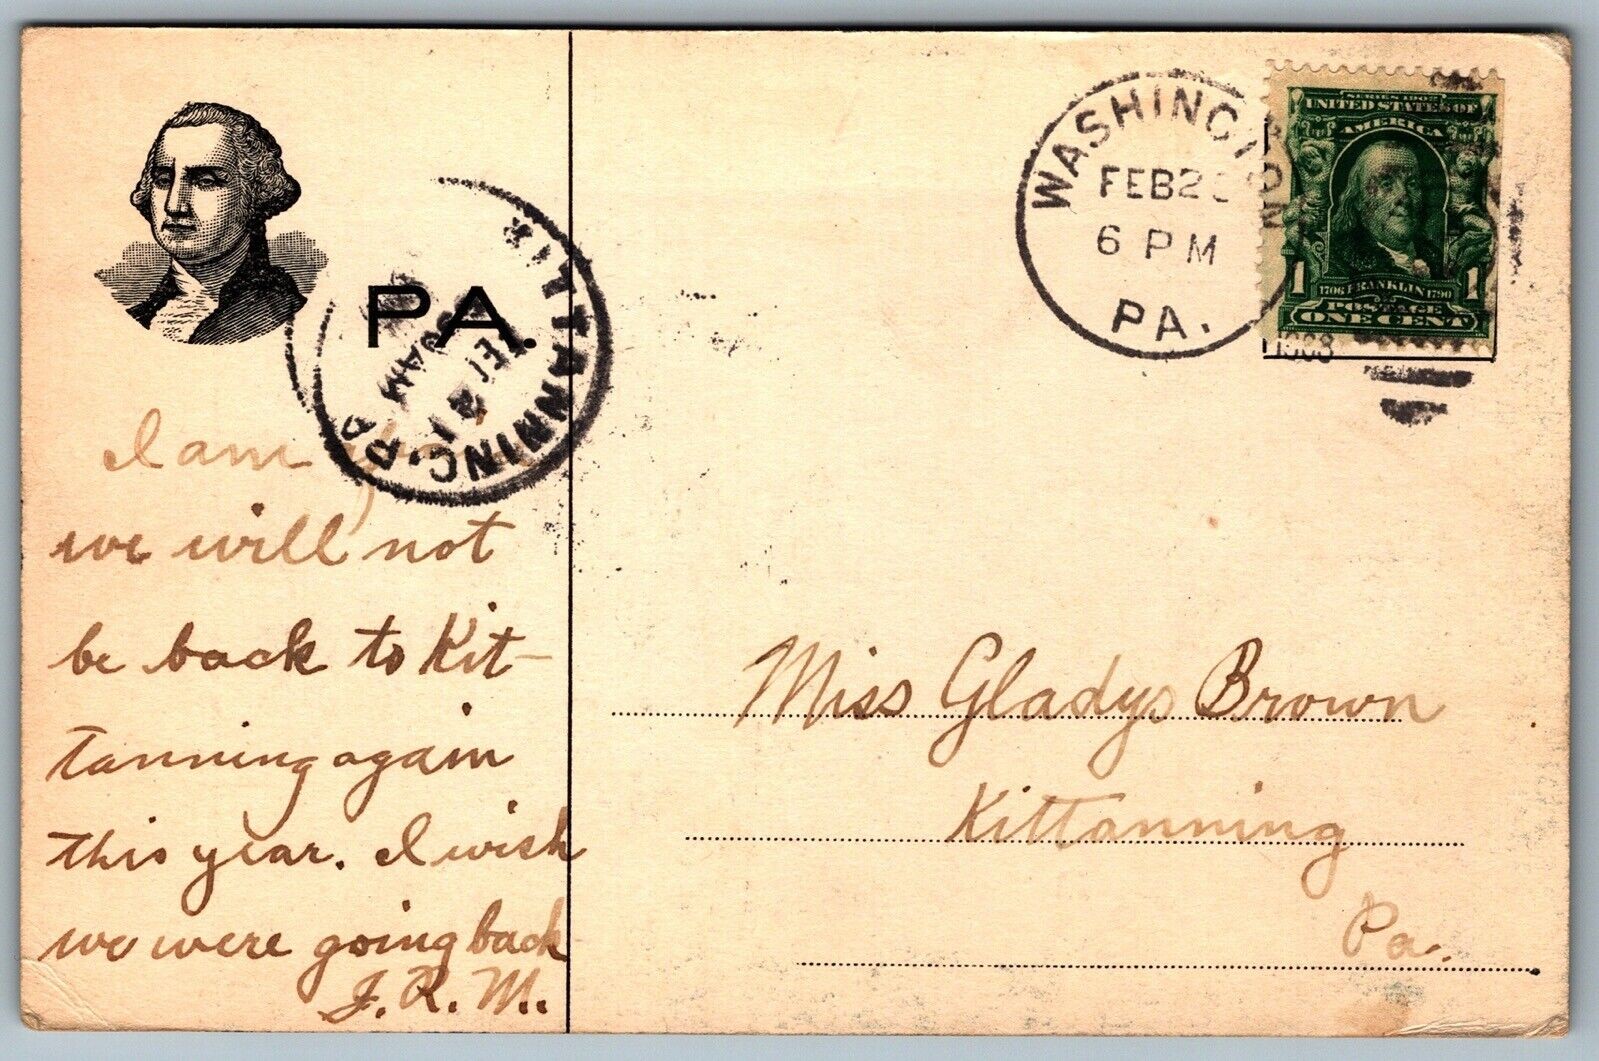 PA.
KITTANNING, PA.
AM
I am
we will not
be back to Kit-
tanning again
this year. I wish
we were going back
J. R. M.
WASHINGTON
FEB 2
6 PM
PA.
1908
SERIES 1902
UNITED STATES OF
AMERICA
1 1
1706 FRANKLIN 1790
POSTAGE
ONE CENT
Miss Gladys Brown
Kittanning
Pa.